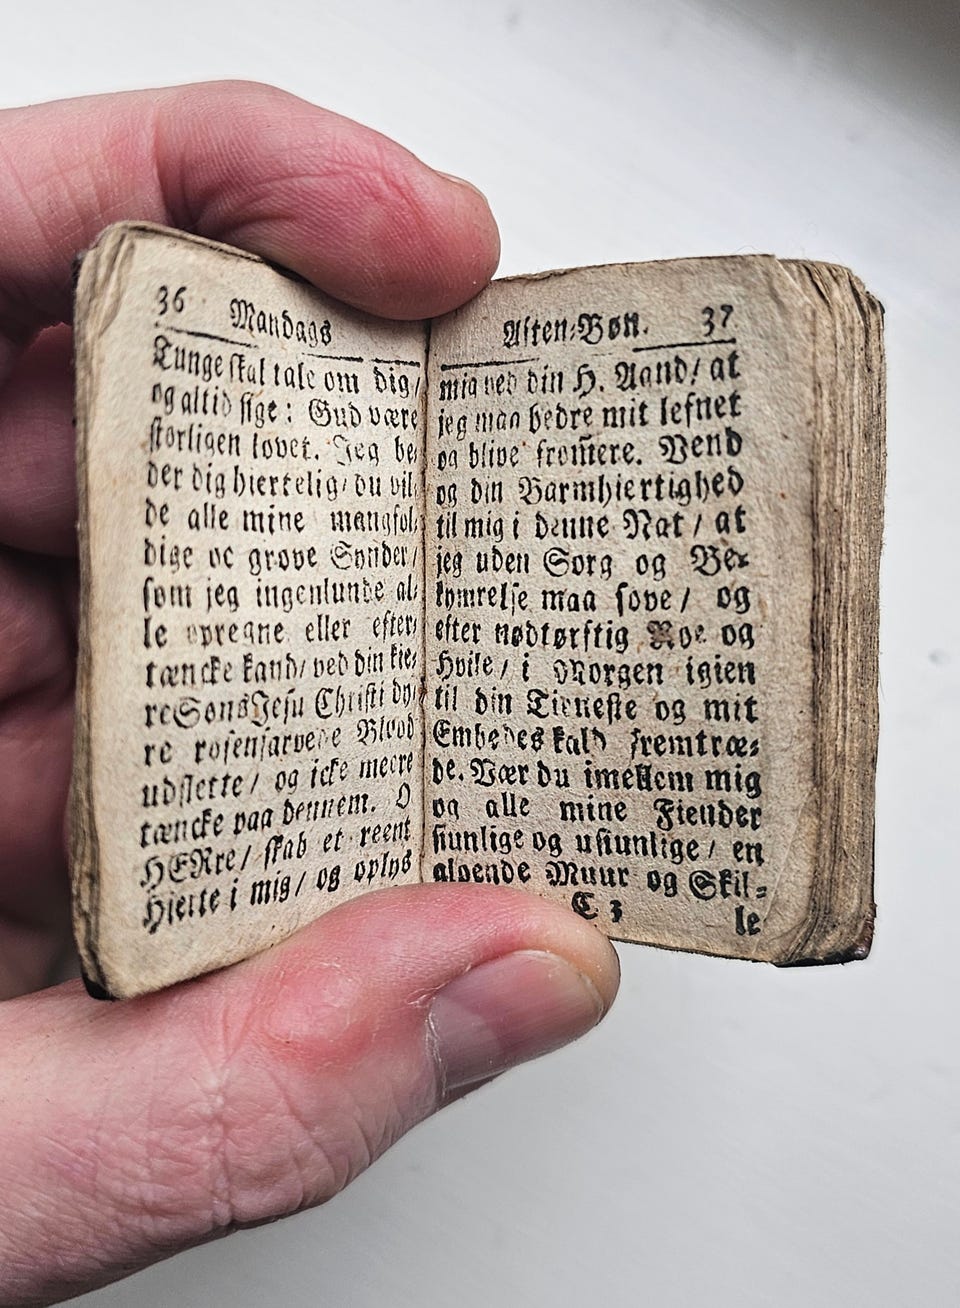 36 Mandags
Tunge skal tale om dig/
og altid sige: Gud være
storligen lovet. Jeg be-
der dig hiertelig/ du vil-
de alle mine mangfol-
dige oc grove Synder/
som jeg ingenlunde al-
le opregne eller efter-
tæncke kand/ ved din kie-
re Søns Jesu Christi dy-
re rosenfarvede Blood
udslette/ og icke meere
tæncke paa dennem. O
HERre/ skab et reent
Hierte i mig/ og oplys
Aften-Bøn. 37
mig ved din H. Aand/ at
jeg maa bedre mit lefnet
og blive from̃ere. Vend
og din Barmhiertighed
til mig i denne Nat/ at
jeg uden Sorg og Be-
kymrelse maa sove/ og
efter nødtørftig Roe og
Hvile/ i Morgen igien
til din Tieneste og mit
Embedes kald fremtræ-
de. Vær du imellem mig
og alle mine Fiender
siunlige og usiunlige/ en
gloende Muur og Skil-
C 3 le